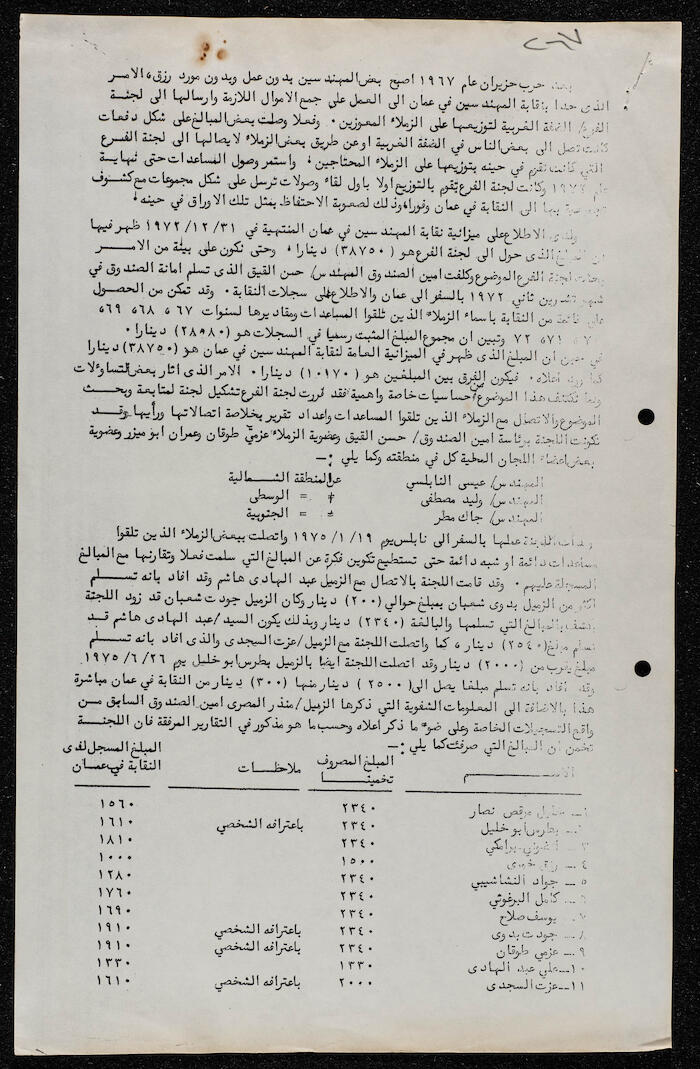 ٢٦٧
بعد حرب حزيران عام ١٩٦٧ اصبح بعض المهندسين بدون عمل وبدون مورد رزق، الامر
الذى حدا بنقابة المهندسين في عمان الى العمل على جمع الاموال اللازمة وارسالها الى لجنة
الفرع/ الضفة الغربية لتوزيعها على الزملاء المعوزين. وفعلا وصلت بعض المبالغ على شكل دفعات
كانت تصل الى بعض الناس في الضفة الغربية او عن طريق بعض الزملاء لايصالها الى لجنة الفرع
التي كانت تقوم في حينه بتوزيعها على الزملاء المحتاجين، واستمر وصول المساعدات حتى نهاية
عام وكانت لجنة الفرع تقوم بالتوزيع اولا باول لقاء وصولات ترسل على شكل مجموعات مع كشوف
بها الى النقابة في عمان وفورا، وذلك لصعوبة الاحتفاظ بمثل تلك الاوراق في حينه،
ولدى الاطلاع على ميزانية نقابة المهندسين في عمان المنتهية في ٣١/ ١٢/ ١٩٧٢ ظهر فيها
ان المبلغ الذى حول الى لجنة الفرع هو (٣٨٧٥٠) دينارا، وحتى نكون على بينة من الامر
لجنة الفرع الموضوع وكلفت امين الصندوق المهندس/ حسن القيق الذى تسلم امانة الصندوق في
شهر تشرين ثاني ١٩٧٢ بالسفر الى عمان والاطلاع على سجلات النقابة. وقد تمكن من الحصول
على قائمة من النقابة باسماء الزملاء الذين تلقوا المساعدات ومقاديرها لسنوات ٦٧، ٦٨، ٦٩،
٧٠، ٧١، ٧٢ وتبين ان مجموع المبلغ المثبت رسميا في السجلات هو (٢٨٩٨٠) دينارا.
في حين ان المبلغ الذى ظهر في الميزانية العامة لنقابة المهندسين في عمان هو (٣٨٧٥٠) دينارا
كما ورد اعلاه. فيكون الفرق بين المبلغين هو (١٠١٧٠) دينارا. الامر الذى اثار بعض التساؤلات
ولما تكتنف هذا الموضوع من حساسيات خاصة واهمية فقد قررت لجنة الفرع تشكيل لجنة لمتابعة وبحث
الموضوع والاتصال مع الزملاء الذين تلقوا المساعدات واعداد تقرير بخلاصة اتصالاتها ورأيها. وقد
تكونت اللجنة برئاسة امين الصندوق/ حسن القيق وعضوية الزملاء عزمي طوقان وعمران ابو ميزر وعضوية
بعض اعضاء اللجان المحلية كل في منطقته وكما يلي :—
المهندس/ عيسى النابلسي عن المنطقة الشمالية
المهندس/ وليد مصطفى = = الوسطى
المهندس/ جاك مطر = = الجنوبية
وبدأت اللجنة عملها بالسفر الى نابلس يوم ١٩/ ١/ ١٩٧٥ واتصلت ببعض الزملاء الذين تلقوا
مساعدات دائمة او شبه دائمة حتى تستطيع تكوين فكرة عن المبالغ التي سلمت فعلا وتقارنها مع المبالغ
المسجلة عليهم. وقد قامت اللجنة بالاتصال مع الزميل عبد الهادى هاشم وقد افاد بانه تسلم
اكثر من الزميل بدوى شعبان بمبلغ حوالي (٢٠٠) دينار وكان الزميل جودت شعبان قد زود اللجنة
بكشف بالمبالغ التي تسلمها والبالغة (٢٣٤٠) دينار وبذلك يكون السيد/ عبد الهادى هاشم قد
تسلم مبلغ (٢٥٤٠) دينار، كما واتصلت اللجنة مع الزميل/ عزت السجدى والذى افاد بانه تسلم
مبلغ يقرب من (٢٠٠٠) دينار وقد اتصلت اللجنة ايضا بالزميل بطرس ابو خليل يوم ٢٦/ ٦/ ١٩٧٥
وقد افاد بانه تسلم مبلغا يصل الى (٢٥٠٠) دينار منها (٣٠٠) دينار من النقابة في عمان مباشرة
هذا بالاضافة الى المعلومات الشفوية التي ذكرها الزميل/ منذر المصرى امين الصندوق السابق من
واقع التسجيلات الخاصة وعلى ضوء ما ذكر اعلاه وحسب ما هو مذكور في التقارير المرفقة فان اللجنة
تخمن ان المبالغ التي صرفت كما يلي :—
الاسم المبلغ المصروف تخمينا ملاحظات المبلغ المسجل لدى النقابة في عمان
١— مرقص نصار ٢٣٤٠ ١٥٦٠
٢— بطرس ابو خليل ٢٣٤٠ باعترافه الشخصي ١٦١٠
٣— برامكي ٢٣٤٠ ١٨١٠
٤— رزق خورى ١٥٠٠ ١٠٠٠
٥— جواد النشاشيبي ٢٣٤٠ ١٢٨٠
٦— كامل البرغوثي ٢٣٤٠ ١٧٦٠
٧— يوسف صلاح ٢٣٤٠ ١٦٩٠
٨— جودت بدوى ٢٣٤٠ باعترافه الشخصي ١٩١٠
٩— عزمي طوقان ٢٣٤٠ باعترافه الشخصي ١٩١٠
١٠— علي عبد الهادى ١٣٣٠ ١٣٣٠
١١— عزت السجدى ٢٠٠٠ باعترافه الشخصي ١٦١٠